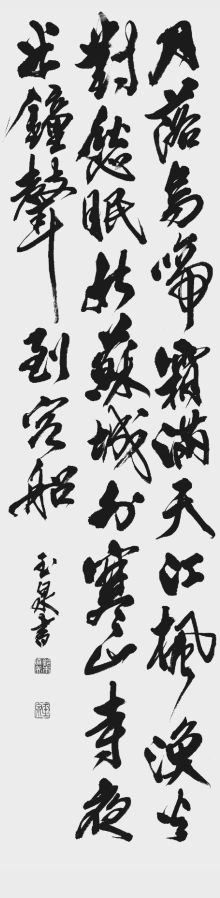 月落烏啼霜滿天江楓漁火
對愁眠姑蘇城外寒山寺夜
半鐘聲到客船
玉泉書